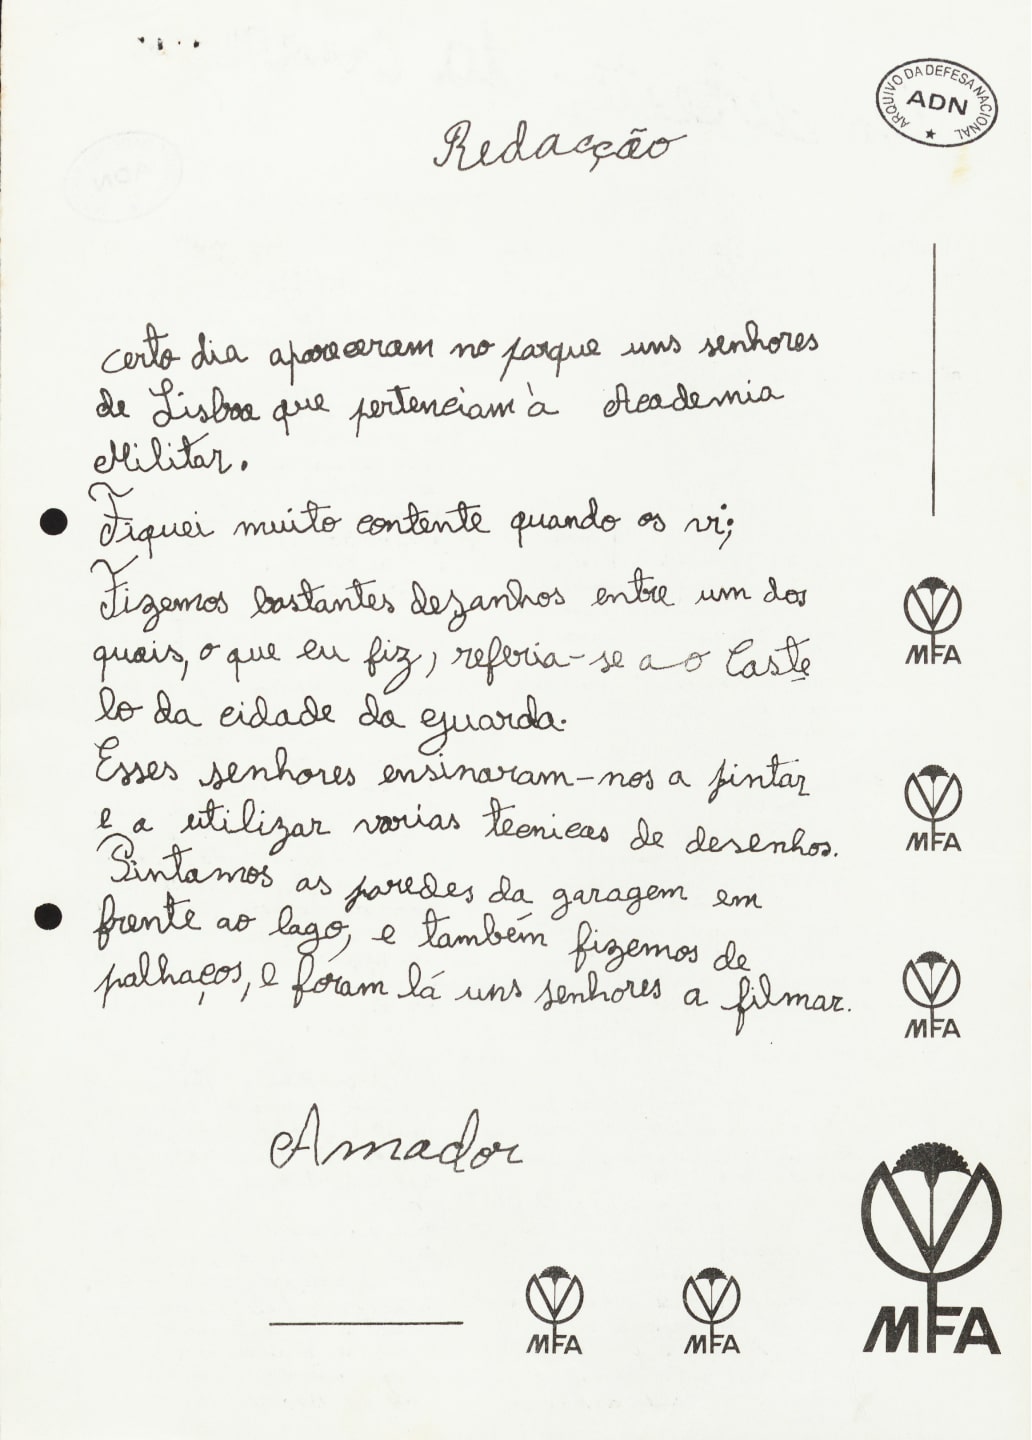 ARQUIVO DA DEFESA NACIONAL
ADN
Redacção
certo dia apareceram no parque uns senhores
de Lisboa que pertenciam à Academia
Militar.
Fiquei muito contente quando os vi;
Fizemos bastantes dezanhos entre um dos
quais, o que eu fiz, referia-se a o Caste
lo da cidade da guarda.
Esses senhores ensinaram-nos a pintar
e a utilizar varias tecnicas de desenhos.
Pintamos as paredes da garagem em
frente ao lago, e também fizemos de
palhaços, e fóram lá uns senhores a filmar.
Amador
MFA
MFA
MFA
MFA
MFA
MFA